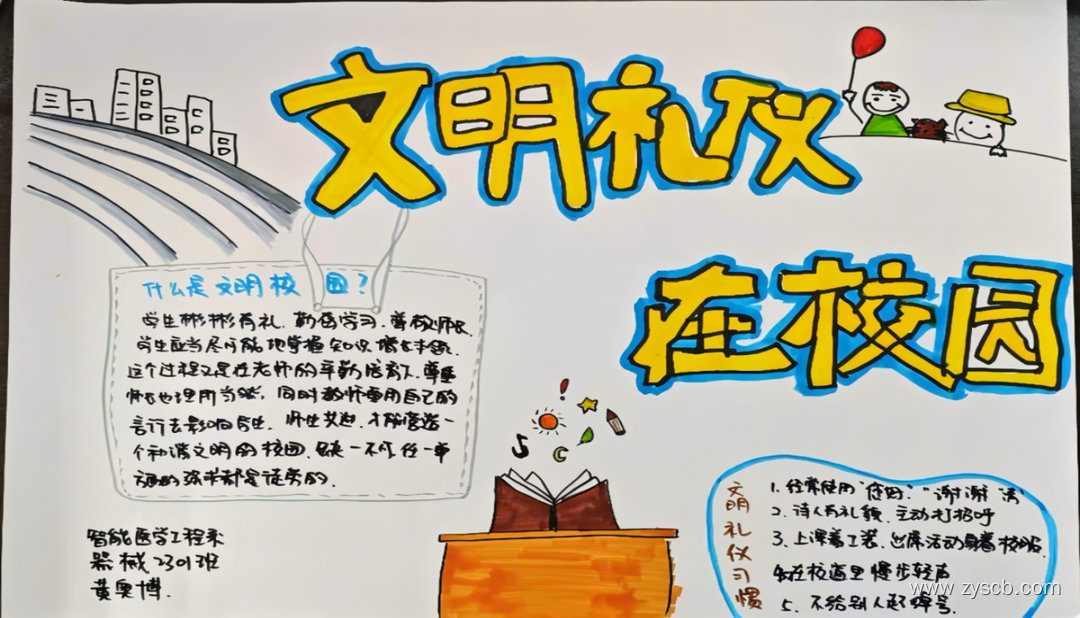 文明礼仪
在校园
什么是文明校园？
学生彬彬有礼，勤奋学习，尊敬师长，
学生应当尽可能地掌握知识 增长才能，
这个过程又是在老师的辛勤培育下，尊重
师长也理所当然，同时教师要用自己的
言行去影响学生，师生共进，才能营造一
个和谐文明的校园，缺一不可，任一单
方面的强求都是徒劳的。
智能医学工程系
器械2301班
黄奥博.
文明礼仪习惯
1. 经常使用“您好”“谢谢”
2. 待人有礼貌，主动打招呼
3. 上课着工装，出席活动身着校服.
4. 在校道里慢步轻声
5. 不给别人起绰号.
www.zyscb.com